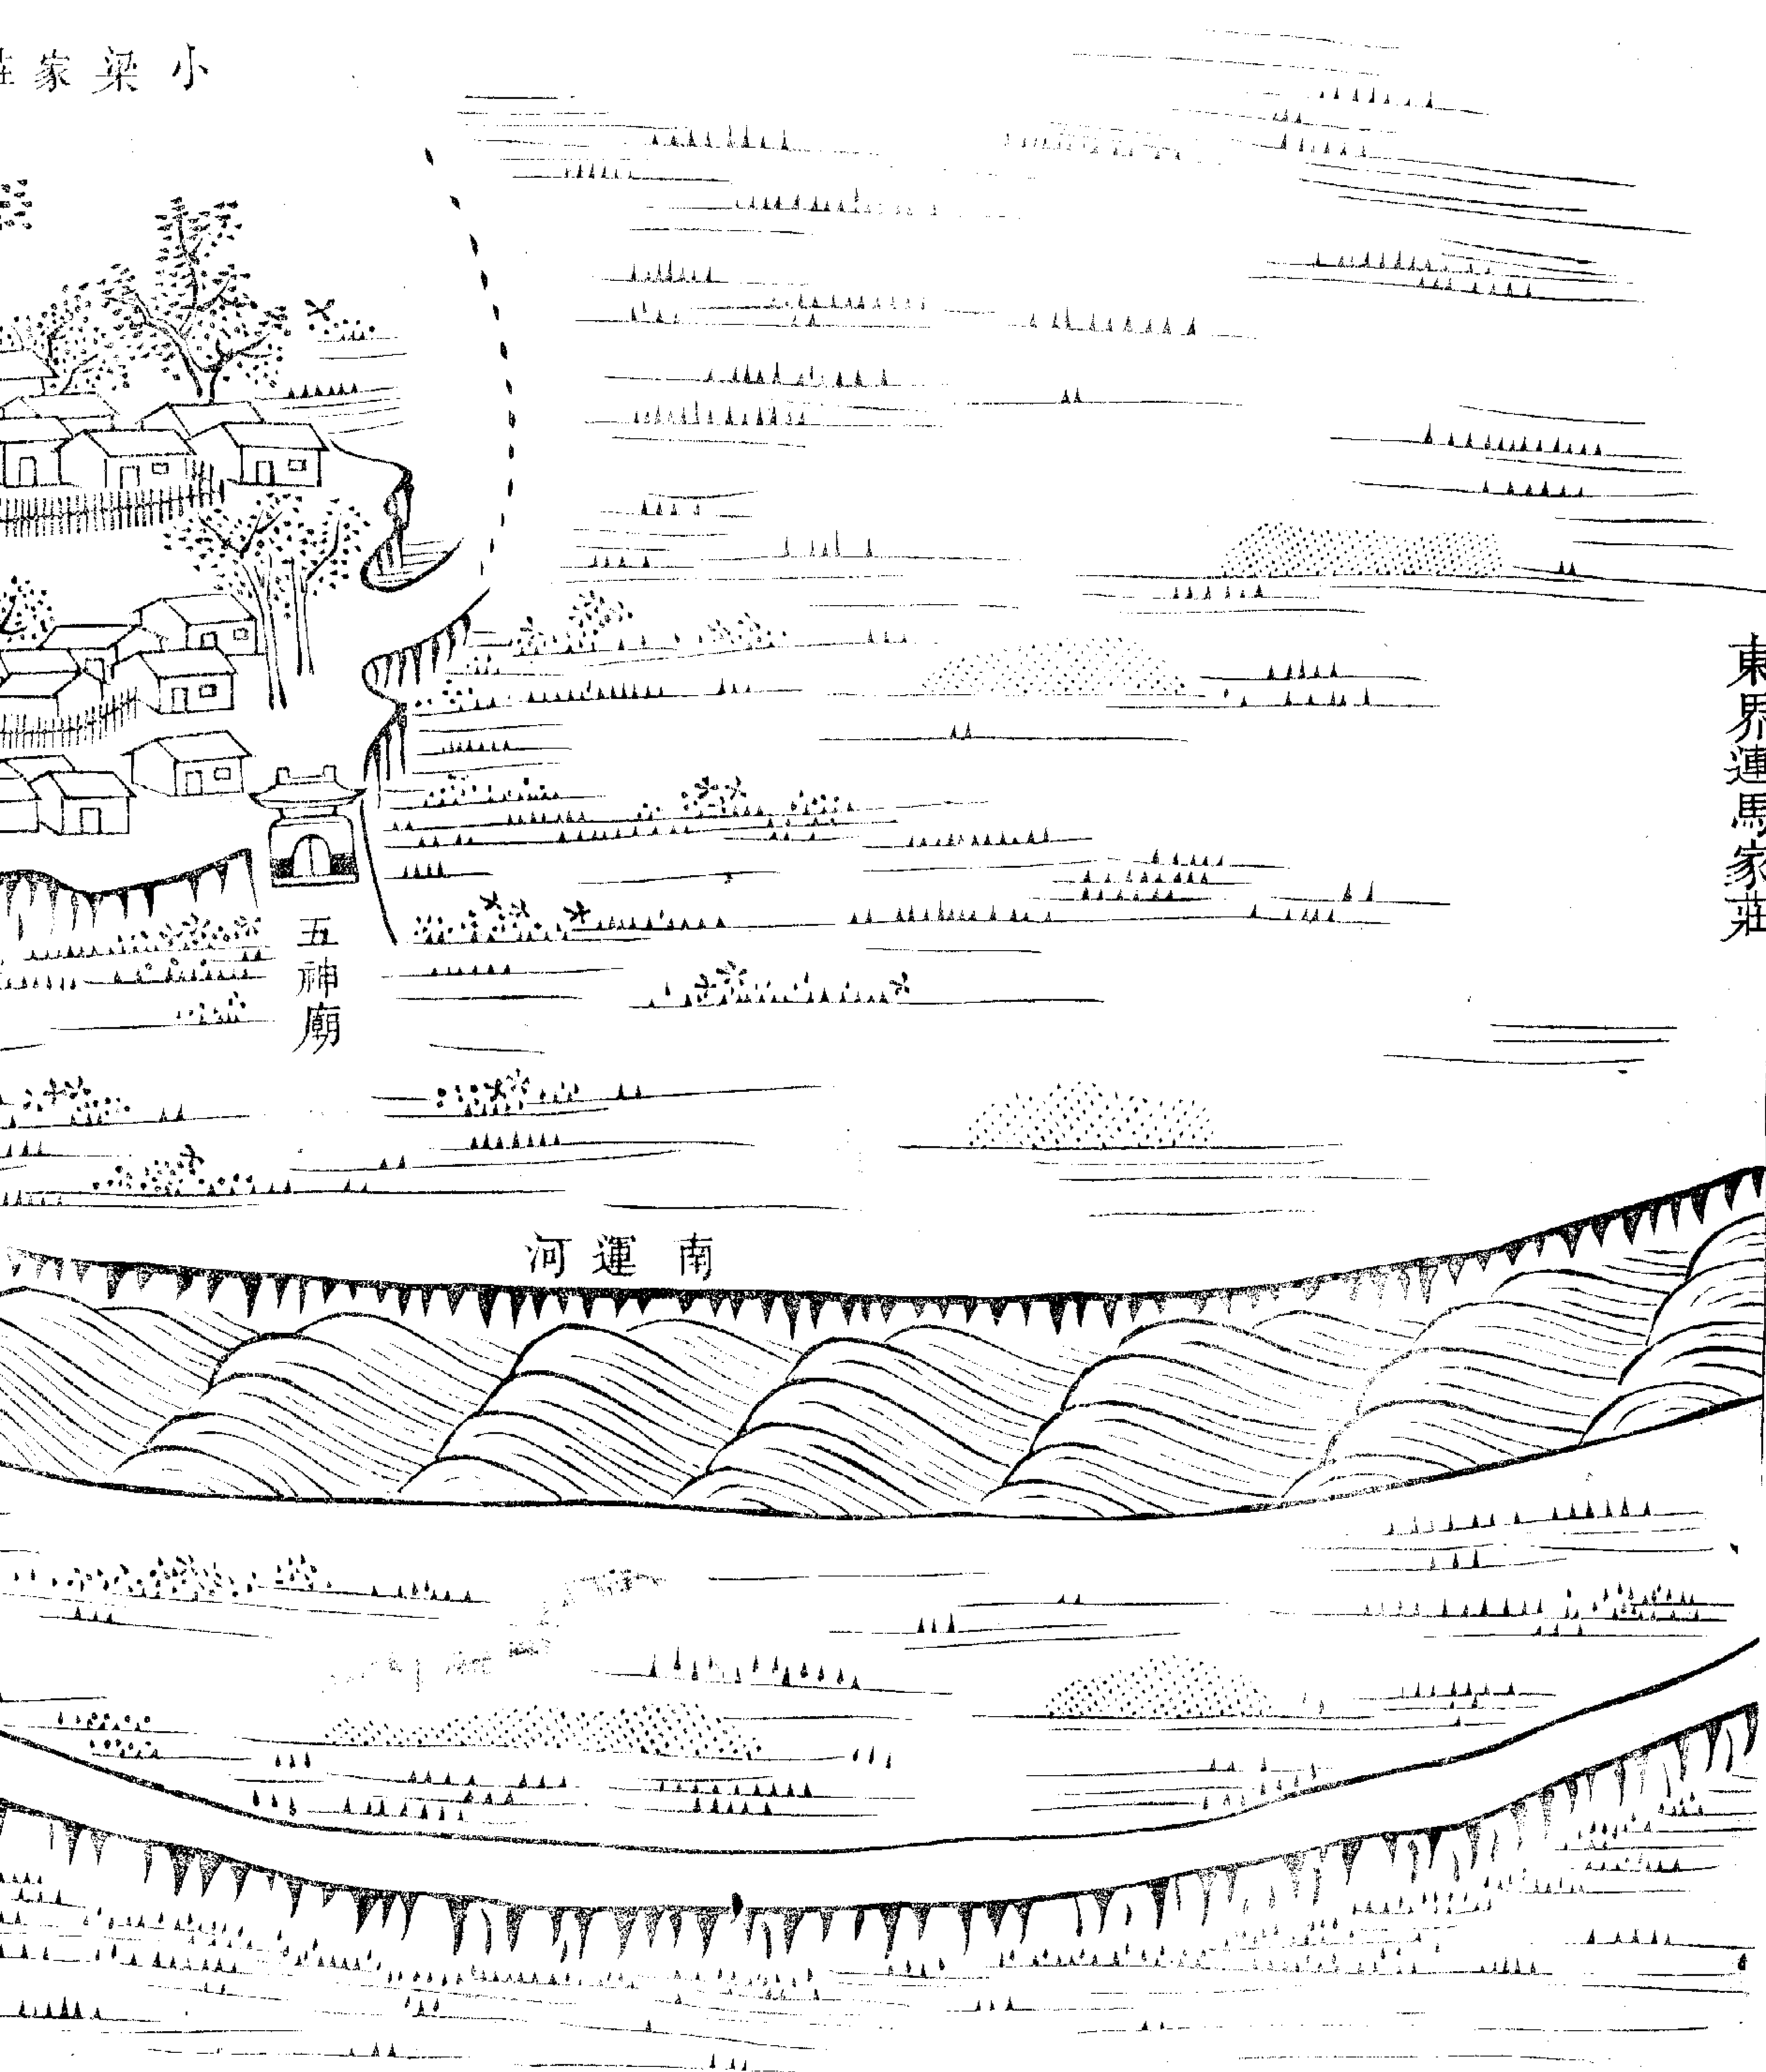 小梁家莊
東界連馬家莊
五神廟
南運河